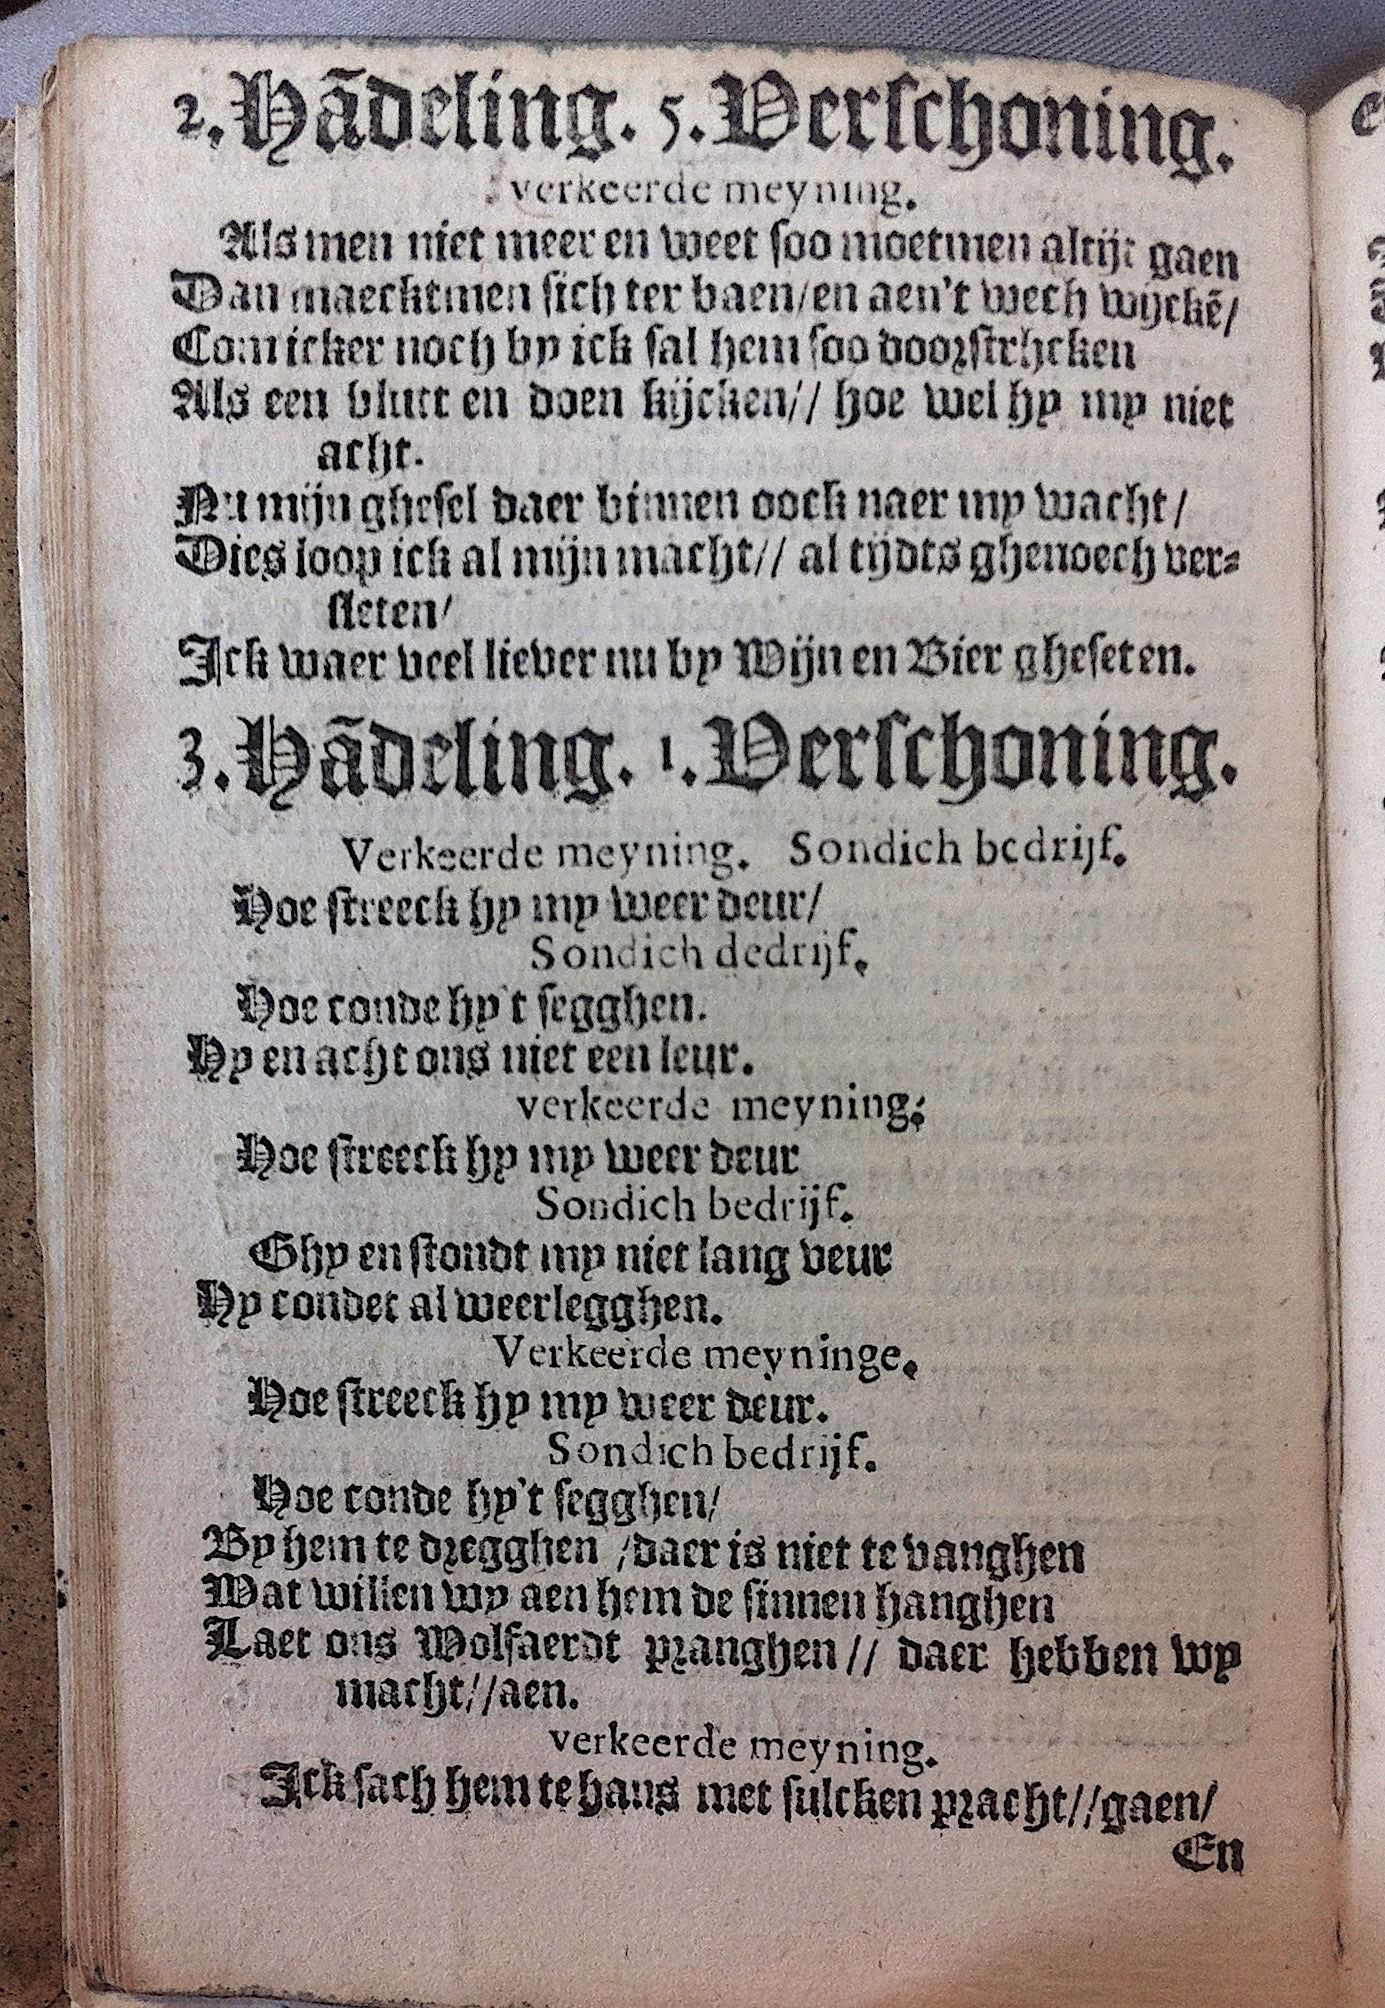 2. Hãdeling. 5. Verschoning.
verkeerde meyning.
Als men niet meer en weet soo moetmen altijt gaen
Dan maecktmen sich ter baen/en aen't wech wijckẽ/
Comicker noch by ick sal hem soo doorstrhcken
Als een blutt en doen kijcken// hoe wel hy my niet
acht.
Nu mijn ghesel daer binnen oock naer my wacht/
Dies loop ick al mijn macht// al tijdts ghenoech ver-
sleten/
Ick waer veel liever nu by Wijn en Bier gheseten.
3. Hãdeling. 1. Verschoning.
Verkeerde meyning. Sondich bedrijf.
Hoe streeck hy my weer deur/
Sondich dedrijf.
Hoe conde hy't segghen.
Hy en acht ons niet een leur.
verkeerde meyning:
Hoe streeck hy my weer deur
Sondich bedrijf.
Ghy en stondt my niet lang veur
Hy condet al weerlegghen.
Verkeerde meyninge.
Hoe streeck hy my weer deur.
Sondich bedrijf.
Hoe conde hy't segghen/
By hem te dregghen /daer is niet te vanghen
Wat willen wy aen hem de sinnen hanghen
Laet ons Wolfaerdt pranghen// daer hebben wy
macht//aen.
verkeerde meyning.
Ick sach hem te haus met sulcken pracht//gaen/
En